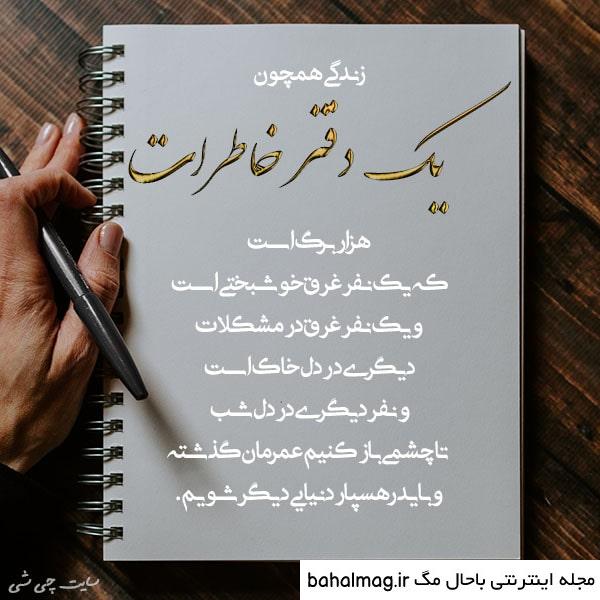 زندگی همچون
یک دفتر خاطرات
هزار برگ است
که یک نفر غرق خوشبختی است
و یک نفر غرق در مشکلات
دیگری در دل خاک است
و نفر دیگری در دل شب
تا چشمی باز کنیم عمرمان گذشته
و باید رهسپار دنیایی دیگر شویم.
سایت چی شی
مجله اینترنتی باحال مگ bahalmag.ir